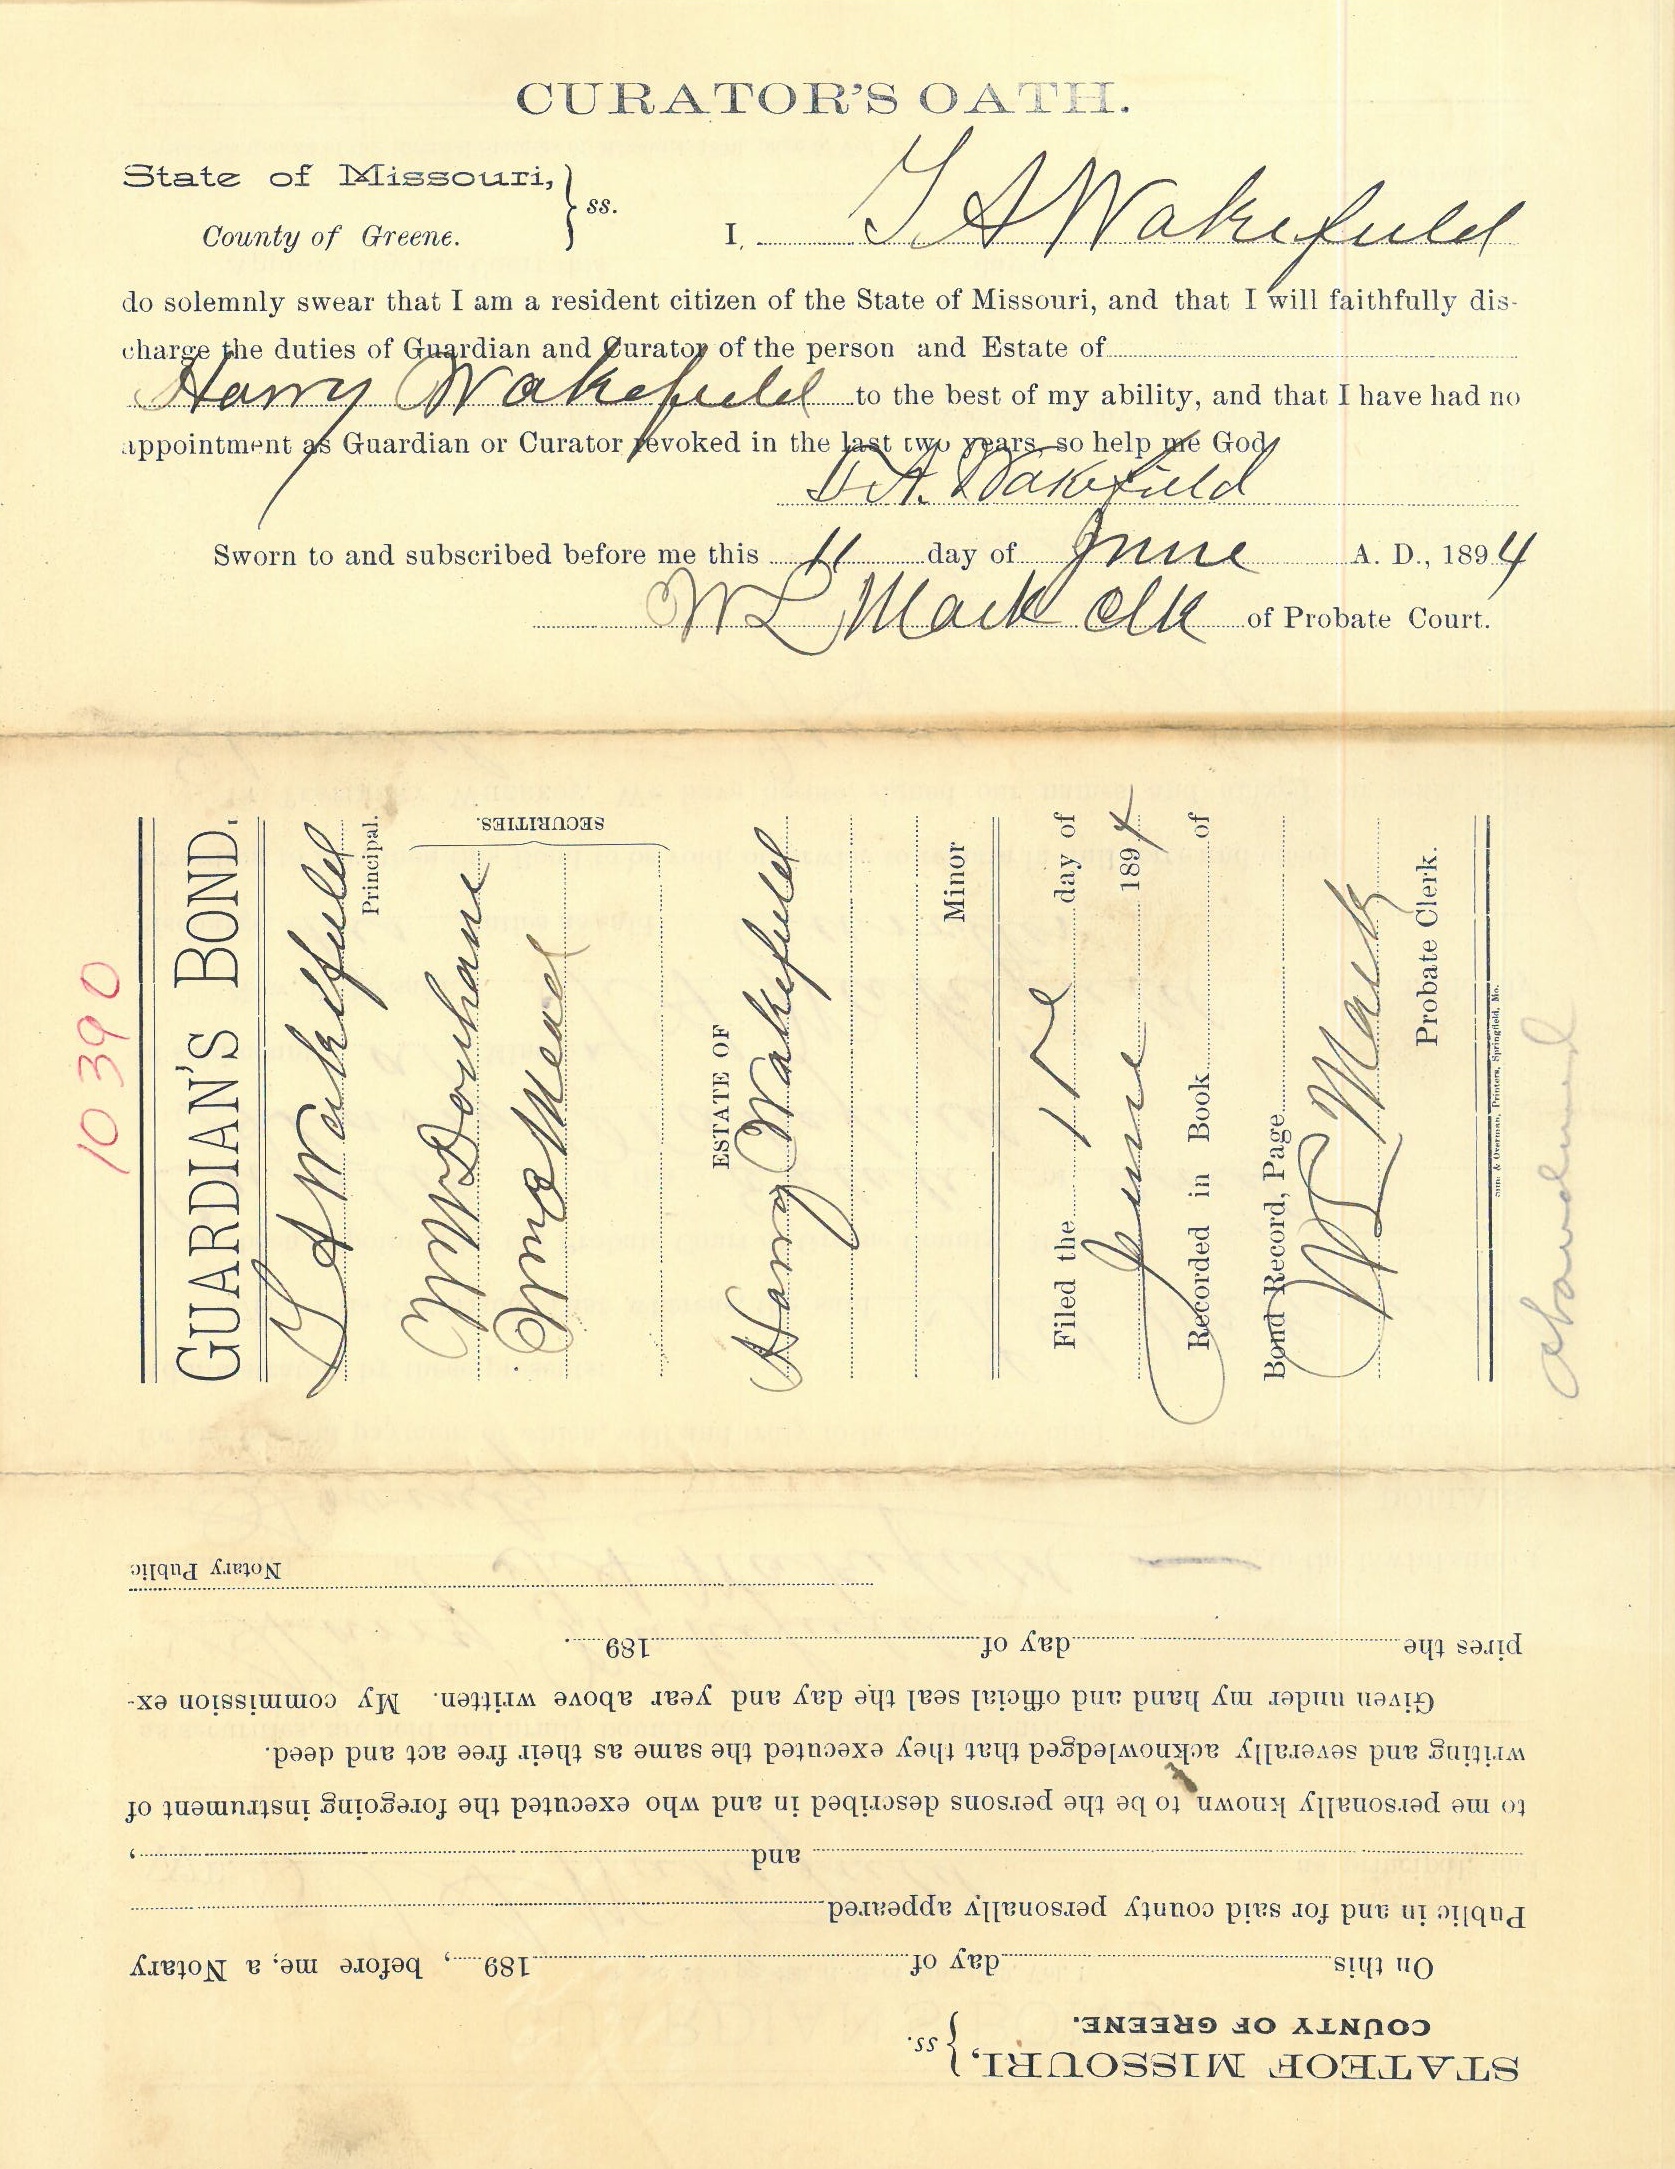 CURATOR'S OATH.
State of Missouri,
County of Greene. } ss. I, T A Wakefield
do solemnly swear that I am a resident citizen of the State of Missouri, and that I will faithfully dis-
charge the duties of Guardian and Curator of the person and Estate of
Harry Wakefield to the best of my ability, and that I have had no
appointment as Guardian or Curator revoked in the last two years, so help me God
T. A. Wakefield
Sworn to and subscribed before me this 11 day of June A. D., 1894
W L Mack Clk of Probate Court.
10390
GUARDIAN'S BOND.
T A Wakefield
Principal.
W W Donham
Wm Mead
SECURITIES.
ESTATE OF
Harry Wakefield
Minor
Filed the 12 day of
June 1894
Recorded in Book of
Bond Record, Page
W L Mack
Probate Clerk.
& Overman, Printers, Springfield, Mo.
STATE OF MISSOURI,
COUNTY OF GREENE. } ss.
On this day of 189 , before me, a Notary
Public in and for said county personally appeared
and ,
to me personally known to be the persons described in and who executed the foregoing instrument of
writing and severally acknowledged that they executed the same as their free act and deed.
Given under my hand and official seal the day and year above written. My commission ex-
pires the day of 189 .
Notary Public